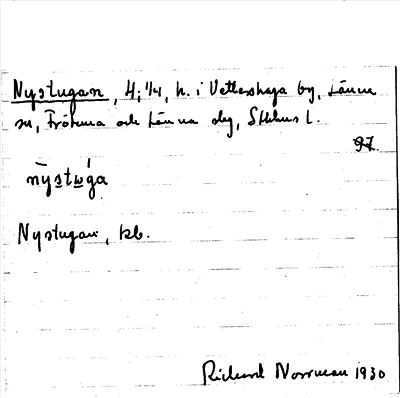 Nystugan, H; 1/4, h. i Vettershaga by, Länna
sn, Frötuna och Länna slg, Sthlms l.
97.
nystuga
Nystugan, kb.
Rickard Norrman 1930